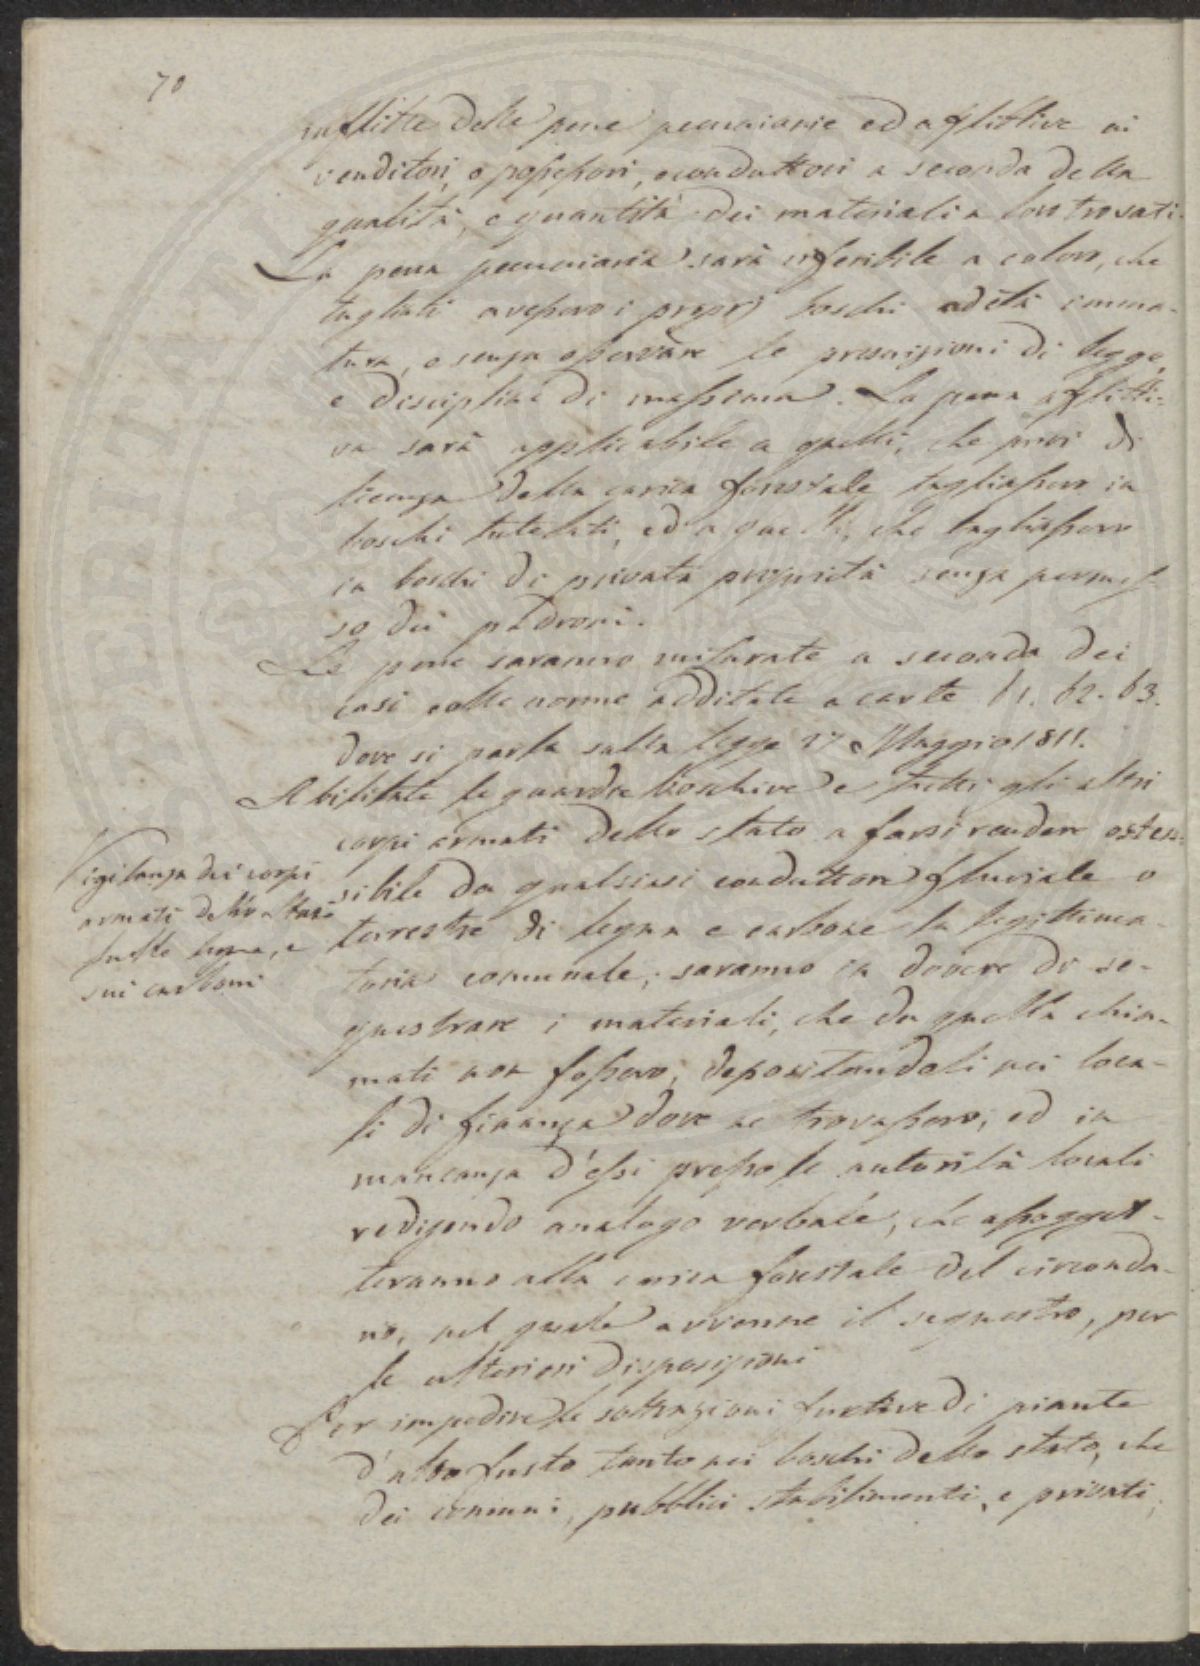 70
inflitte delle pene pecuniarie ed afflittive ai
venditori, o possessori, o conduttori a seconda della
qualità, e quantità dei materiali a loro trovati.
La pena pecuniaria sarà inferibile a coloro, che
tagliati avessero i proprj boschi ad età imma-
tura, o senza osservare le prescrizioni di legge,
e discipline di massima. La pena afflitti-
va sarà applicabile a quelli, che privi di
licenza della carica forestale tagliassero in
boschi tutelati, ed a quelli, che tagliassero
in boschi di privata proprietà senza permes-
so dei padroni.
Le pene saranno misurate a seconda dei
casi colle norme additate a carte 61. 62. 63.
dove si parla sulla legge 27 Maggio 1811.
Abilitate le guardie boschive e tutti gli altri
corpi armati dello stato a farsi rendere osten-
sibile da qualsiasi conduttore fluviale o
terrestre di legna e carbone la legittima-
toria comunale; saranno in dovere di se-
questrare i materiali, che da quella chia-
mati non fossero; depositandoli nei loca-
li di finanza dove ne trovassero, ed in
mancanza d'essi presso le autorità locali
redigendo analogo verbale, che assogget-
teranno alla carica forestale del circonda-
rio, nel quale avvenne il sequestro, per
le ulteriori disposizioni
Per impedire le sottrazioni furtive di piante
d'alto fusto tanto nei boschi dello stato, che
dei comuni, pubblici stabilimenti, e privati,
Vigilanza dei corpi
armati dello Stato
sulle legna, e
sui carboni